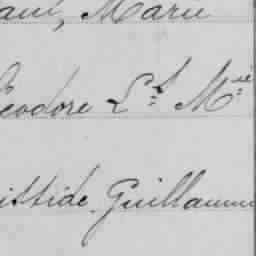 aul, Marie
éodore Ls Mie
istide Guillaume